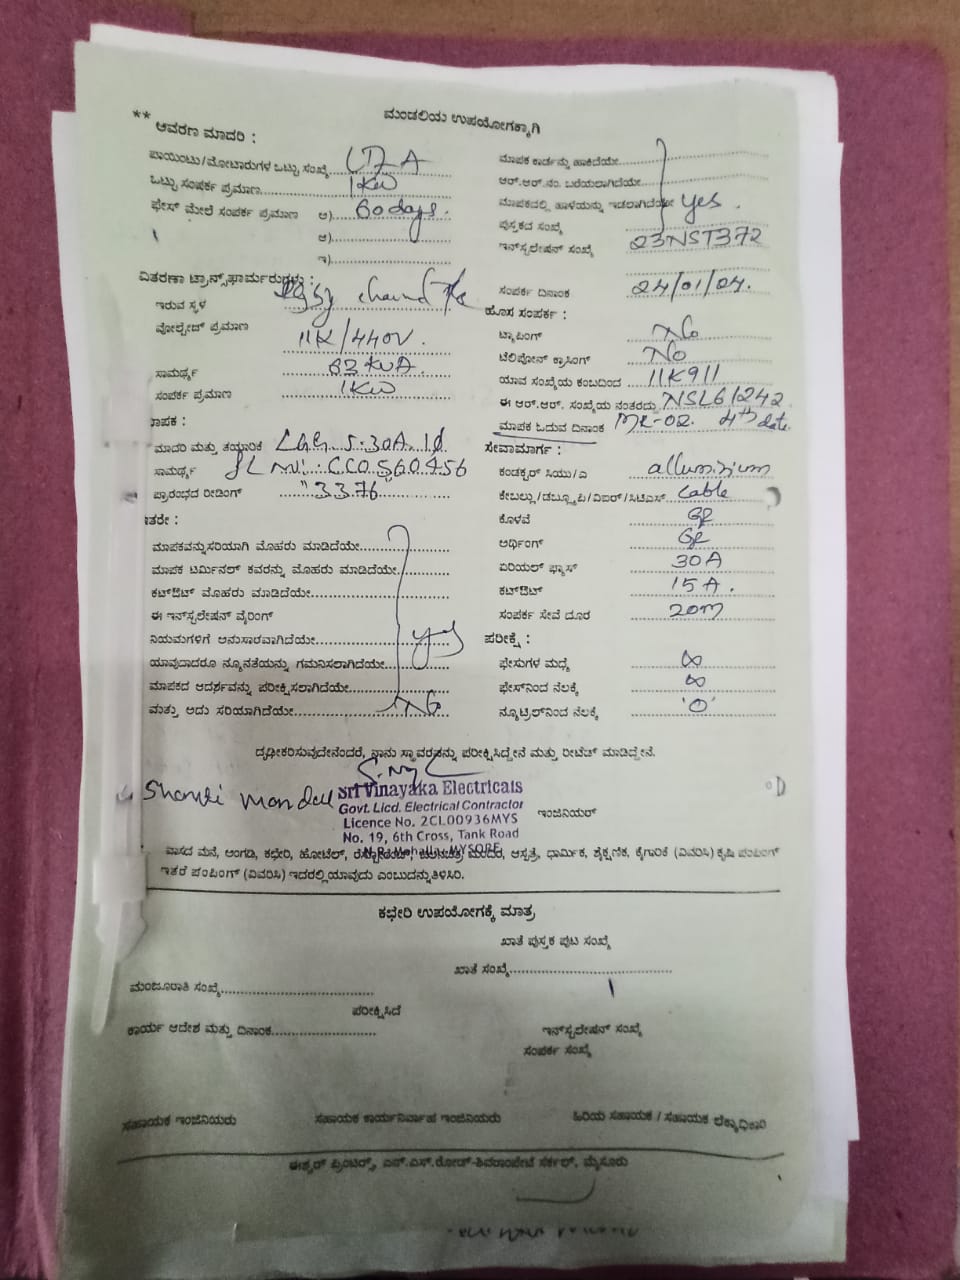 ಮಂಡಲಿಯ ಉಪಯೋಗಕ್ಕಾಗಿ
** ಆವರಣ ಮಾದರಿ :
ಪಾಯಿಂಟು/ಮೋಟಾರುಗಳ ಒಟ್ಟು ಸಂಖ್ಯೆ
ಒಟ್ಟು ಸಂಪರ್ಕ ಪ್ರಮಾಣ 1KW
ಫೇಸ್ ಮೇಲೆ ಸಂಪರ್ಕ ಪ್ರಮಾಣ ಅ) 60 days.
ಆ)
ಇ)
ವಿತರಣಾ ಟ್ರಾನ್ಸ್‌ಫಾರ್ಮರುಗಳು :
ಇರುವ ಸ್ಥಳ
ವೋಲ್ಟೇಜ್ ಪ್ರಮಾಣ 11K/440V.
ಸಾಮರ್ಥ್ಯ 63 KVA.
ಸಂಪರ್ಕ ಪ್ರಮಾಣ 1KW
ಮಾಪಕ :
ಮಾದರಿ ಮತ್ತು ತಯಾರಿಕೆ L&G 5-30A 1ø
ಸಾಮರ್ಥ್ಯ SL No: CC0560456
ಪ್ರಾರಂಭದ ರೀಡಿಂಗ್ 33.76
ಇತರೇ :
ಮಾಪಕವನ್ನು ಸರಿಯಾಗಿ ಮೊಹರು ಮಾಡಿದೆಯೇ
ಮಾಪಕ ಟರ್ಮಿನಲ್ ಕವರನ್ನು ಮೊಹರು ಮಾಡಿದೆಯೇ
ಕಟ್‌ಔಟ್ ಮೊಹರು ಮಾಡಿದೆಯೇ
ಈ ಇನ್‌ಸ್ಟಲೇಷನ್ ವೈರಿಂಗ್
ನಿಯಮಗಳಿಗೆ ಅನುಸಾರವಾಗಿದೆಯೇ yes
ಯಾವುದಾದರೂ ನ್ಯೂನತೆಯನ್ನು ಗಮನಿಸಲಾಗಿದೆಯೇ
ಮಾಪಕದ ಆದರ್ಶವನ್ನು ಪರೀಕ್ಷಿಸಲಾಗಿದೆಯೇ
ಮತ್ತು ಅದು ಸರಿಯಾಗಿದೆಯೇ No
ಮಾಪಕ ಕಾರ್ಡನ್ನು ಹಾಕಿದೆಯೇ
ಆರ್.ಆರ್.ನಂ. ಬರೆಯಲಾಗಿದೆಯೇ
ಮಾಪಕದಲ್ಲಿ ಹಾಳೆಯನ್ನು ಇಡಲಾಗಿದೆಯೇ yes.
ಪುಸ್ತಕದ ಸಂಖ್ಯೆ
ಇನ್‌ಸ್ಟಲೇಷನ್ ಸಂಖ್ಯೆ 23NST372
ಸಂಪರ್ಕ ದಿನಾಂಕ 24/01/04.
ಹೊಸ ಸಂಪರ್ಕ :
ಟ್ಯಾಪಿಂಗ್ No
ಟೆಲಿಫೋನ್ ಕ್ರಾಸಿಂಗ್ No
ಯಾವ ಸಂಖ್ಯೆಯ ಕಂಬದಿಂದ 11K911
ಈ ಆರ್.ಆರ್. ಸಂಖ್ಯೆಯ ನಂತರದ್ದು NSL61242
ಮಾಪಕ ಓದುವ ದಿನಾಂಕ MR-02. 4th date.
ಸೇವಾಮಾರ್ಗ :
ಕಂಡಕ್ಟರ್ ಸಿಯು/ಎ allumizium
ಕೇಬಲ್ಲು/ಡಬ್ಲ್ಯೂಪಿ/ವಿಐಆರ್/ಸಿಟಿಎಸ್ Cable
ಕೊಳವೆ GR
ಅರ್ಥಿಂಗ್ GR
ಏರಿಯಲ್ ಫ್ಯೂಸ್ 30A
ಕಟ್‌ಔಟ್ 15A.
ಸಂಪರ್ಕ ಸೇವೆ ದೂರ 20M
ಪರೀಕ್ಷೆ :
ಫೇಸುಗಳ ಮಧ್ಯೆ ∞
ಫೇಸ್‌ನಿಂದ ನೆಲಕ್ಕೆ ∞
ನ್ಯೂಟ್ರಲ್‌ನಿಂದ ನೆಲಕ್ಕೆ 'O'
ದೃಢೀಕರಿಸುವುದೇನೆಂದರೆ, ನಾನು ಸ್ಥಾವರವನ್ನು ಪರೀಕ್ಷಿಸಿದ್ದೇನೆ ಮತ್ತು ರೀಟೆಕ್ ಮಾಡಿದ್ದೇನೆ.
Sri Vinayaka Electricals
Govt. Licd. Electrical Contractor
Licence No. 2CL00936MYS
No. 19, 6th Cross, Tank Road
N.R. Mohalla, MYSORE
ಇಂಜಿನಿಯರ್
ವಾಸದ ಮನೆ, ಅಂಗಡಿ, ಕಛೇರಿ, ಹೋಟೆಲ್, ರೆಸ್ಟೋರೆಂಟ್, ಚಲನಚಿತ್ರ ಮಂದಿರ, ಆಸ್ಪತ್ರೆ, ಧಾರ್ಮಿಕ, ಶೈಕ್ಷಣಿಕ, ಕೈಗಾರಿಕೆ (ವಿವರಿಸಿ) ಕೃಷಿ ಪಂಪಿಂಗ್
ಇತರೆ ಪಂಪಿಂಗ್ (ವಿವರಿಸಿ) ಇದರಲ್ಲಿ ಯಾವುದು ಎಂಬುದನ್ನು ತಿಳಿಸಿರಿ.
ಕಛೇರಿ ಉಪಯೋಗಕ್ಕೆ ಮಾತ್ರ
ಖಾತೆ ಪುಸ್ತಕ ಪುಟ ಸಂಖ್ಯೆ
ಖಾತೆ ಸಂಖ್ಯೆ
ಮಂಜೂರಾತಿ ಸಂಖ್ಯೆ
ಪರೀಕ್ಷಿಸಿದೆ
ಕಾರ್ಯ ಆದೇಶ ಮತ್ತು ದಿನಾಂಕ
ಇನ್‌ಸ್ಟಲೇಷನ್ ಸಂಖ್ಯೆ
ಸಂಪರ್ಕ ಸಂಖ್ಯೆ
ಸಹಾಯಕ ಇಂಜಿನಿಯರು ಸಹಾಯಕ ಕಾರ್ಯನಿರ್ವಾಹ ಇಂಜಿನಿಯರು ಹಿರಿಯ ಸಹಾಯಕ / ಸಹಾಯಕ ಲೆಕ್ಕಾಧಿಕಾರಿ
ಈಶ್ವರ್ ಪ್ರಿಂಟರ್ಸ್, ಎನ್.ಎಸ್.ರೋಡ್-ಶಿವರಾಂಪೇಟೆ ಸರ್ಕಲ್, ಮೈಸೂರು